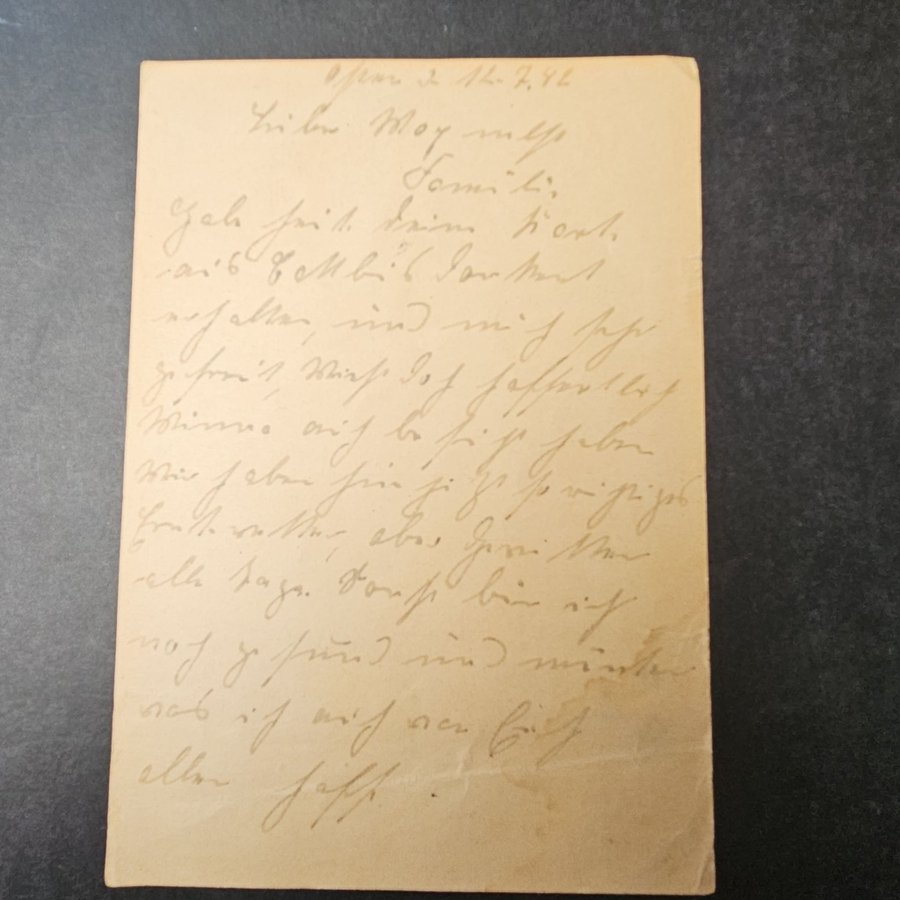 Osten d. 12.7.42
Lieber Max nebst
Familie
Habe heute deine Karte
aus Cottbus dankend
erhalten, und mich sehr
gefreut, Wirst doch hoffentlich
auch besucht haben
Wir haben hier jetzt so richtiges
Erntewetter, aber Gewitter
alle Tage. Sonst bin ich
noch gesund und munter
was ich auch von Euch
allen hoffe.